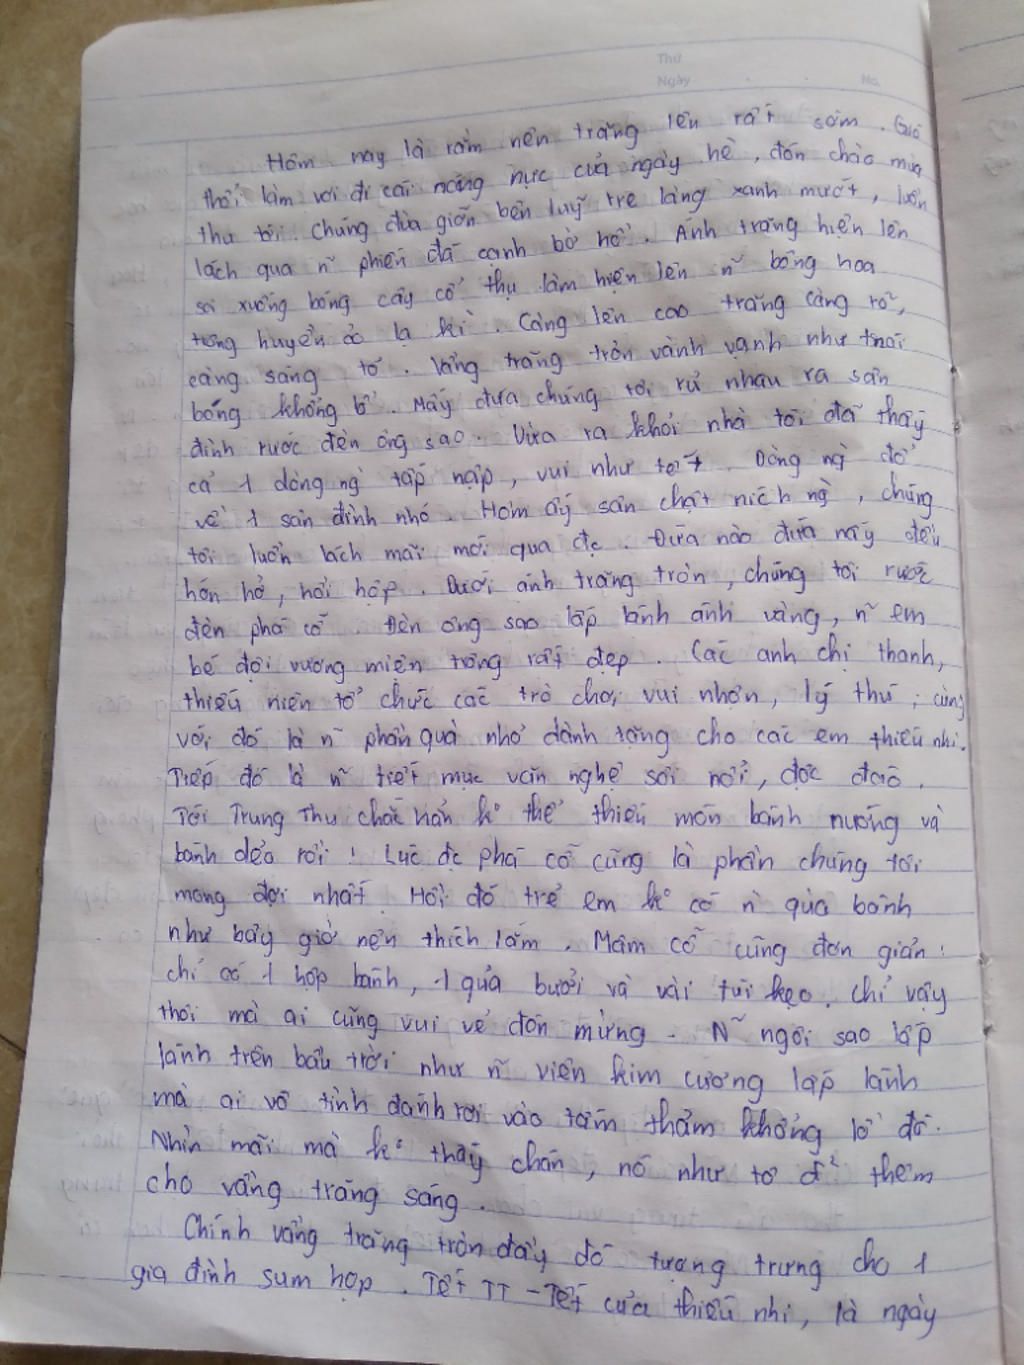 Thứ
Ngày No.
Hôm nay là rằm nên trăng lên rất sớm. Gió
thổi làm vơi đi cái nóng nực của ngày hè, đón chào mùa
thu tới. Chúng đùa giỡn bên luỹ tre làng xanh mướt, luồn
lách qua ~n phiến đá cạnh bờ hồ. Ánh trăng hiện lên
soi xuống bóng cây cổ thụ làm hiện lên ~n bông hoa
trông huyền ảo lạ kì. Càng lên cao trăng càng rõ,
càng sáng tỏ. Vầng trăng tròn vành vạnh như trái
bóng khổng lồ. Mấy đứa chúng tôi rủ nhau ra sân
đình rước đèn ông sao. Vừa ra khỏi nhà tôi đã thấy
cả 1 dòng ng` tấp nập, vui như tết. Dòng ng` đổ
về 1 sân đình nhỏ. Hôm ấy sân chật ních ng`, chúng
tôi luồn lách mãi mới qua đc. Đứa nào đứa nấy đều
hớn hở, hồi hộp. Dưới ánh trăng tròn, chúng tôi rước
đèn phá cỗ. Đèn ông sao lấp lánh ánh vàng, ~n em
bé đội vương miện trông rất đẹp. Các anh chị thanh,
thiếu niên tổ chức các trò chơi vui nhộn, lý thú; cùng
với đó là ~n phần quà nhỏ dành tặng cho các em thiếu nhi.
Tiếp đó là ~n tiết mục văn nghệ sôi nổi, độc đáo.
Tới Trung Thu chắc hẳn k° thể thiếu món bánh nướng và
bánh dẻo rồi! Lúc đc phá cỗ cũng là phần chúng tôi
mong đợi nhất. Hồi đó trẻ em k° có ~n quà bánh
như bây giờ nên thích lắm. Mâm cỗ cũng đơn giản:
chỉ có 1 hộp bánh, 1 quả bưởi và vài túi kẹo. Chỉ vậy
thôi mà ai cũng vui vẻ đón mừng. ~N ngôi sao lấp
lánh trên bầu trời như ~n viên kim cương lấp lánh
mà ai vô tình đánh rơi vào tấm thảm khổng lồ đó.
Nhìn mãi mà k° thấy chán, nó như tô đ² thêm
cho vầng trăng sáng.
Chính vầng trăng tròn đầy đó tượng trưng cho 1
gia đình sum họp. Tết TT - Tết của thiếu nhi, là ngày